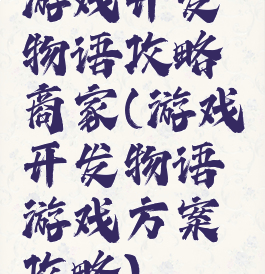 游戏开发
物语攻略
商家(游戏
开发物语
游戏方案
攻略)